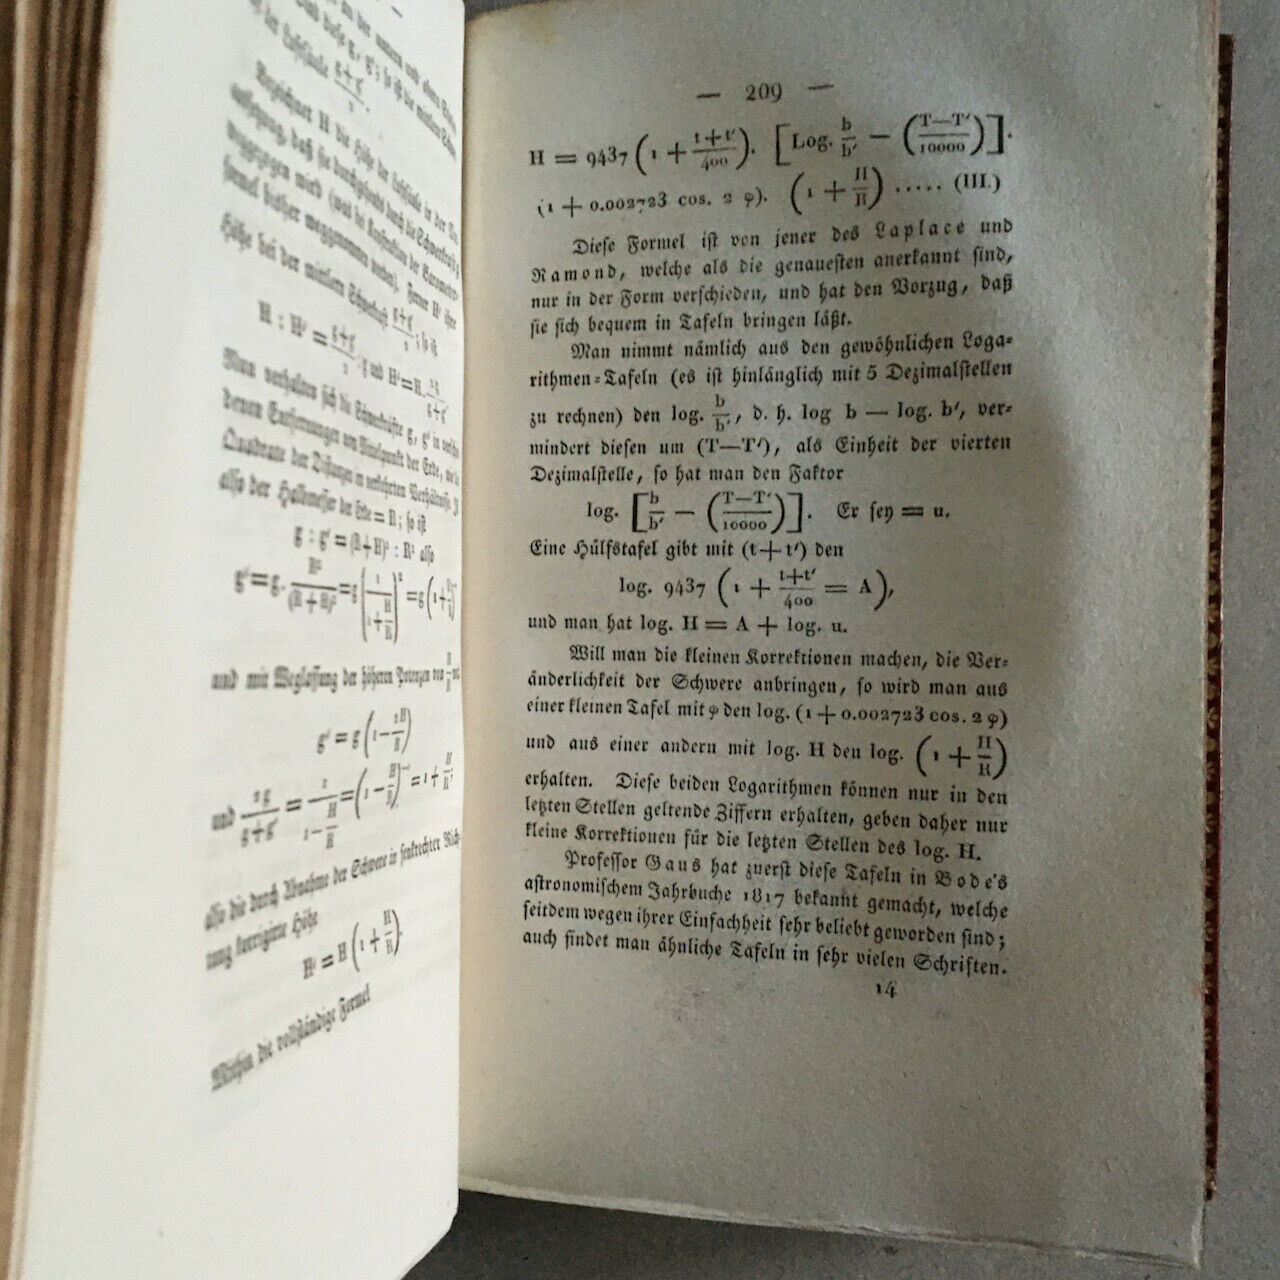 an der untern und obern
sind diese g, g'; so ist die mittlere
der Luftsäule g+g'/2.
Bezeichnet H die Höhe der Luftsäule in der
daß sie durchgehends durch die Schwerkraft g
wird (was bei Konstruktion der Barometer-
formel bisher weggenommen worden). Ferner H' ihre
Höhe bei der mittlern Schwerkraft g+g'/2; so ist
H : H' = g+g'/2 : g und H' = H. 2g/g+g'
Nun verhalten sich die Schwerkräfte g, g' in
denen Entfernungen vom Mittelpunkt der Erde, wie die
Quadrate der Distanzen in verkehrtem Verhältnisse.
also der Halbmesser der Erde = R; so ist
g : g' = (R+H)² : R² also
g' = g. R²/(R+H)² = g (1/1+H/R)² = g (1+H/R)
und mit Weglassung der höheren Potenzen von H/R
g' = g (1 − 2H/R)
und 2g/g+g' = 1/1−H/R = (1 − H/R)⁻¹ = 1 + H/R;
also die durch Abnahme der Schwere in senkrechter Rich-
tung korrigirte Höhe
H' = H (1 + H/R).
Mithin die vollständige Formel
— 209 —
H = 9437 (1 + t+t'/400). [Log. b/b' − (T—T'/10000)].
(1 + 0.002723 cos. 2 φ). (1 + H/R) ..... (III.)
Diese Formel ist von jener des Laplace und
Ramond, welche als die genauesten anerkannt sind,
nur in der Form verschieden, und hat den Vorzug, daß
sie sich bequem in Tafeln bringen läßt.
Man nimmt nämlich aus den gewöhnlichen Loga-
rithmen-Tafeln (es ist hinlänglich mit 5 Dezimalstellen
zu rechnen) den log. b/b', d. h. log b — log. b', ver-
mindert diesen um (T—T'), als Einheit der vierten
Dezimalstelle, so hat man den Faktor
log. [b/b' − (T—T'/10000)]. Er sey = u.
Eine Hülfstafel gibt mit (t+t') den
log. 9437 (1 + t+t'/400 = A),
und man hat log. H = A + log. u.
Will man die kleinen Korrektionen machen, die Ver-
änderlichkeit der Schwere anbringen, so wird man aus
einer kleinen Tafel mit φ den log. (1 + 0.002723 cos. 2 φ)
und aus einer andern mit log. H den log. (1 + H/R)
erhalten. Diese beiden Logarithmen können nur in den
letzten Stellen geltende Ziffern erhalten, geben daher nur
kleine Korrektionen für die letzten Stellen des log. H.
Professor Gaus hat zuerst diese Tafeln in Bode's
astronomischem Jahrbuche 1817 bekannt gemacht, welche
seitdem wegen ihrer Einfachheit sehr beliebt geworden sind;
auch findet man ähnliche Tafeln in sehr vielen Schriften.
14